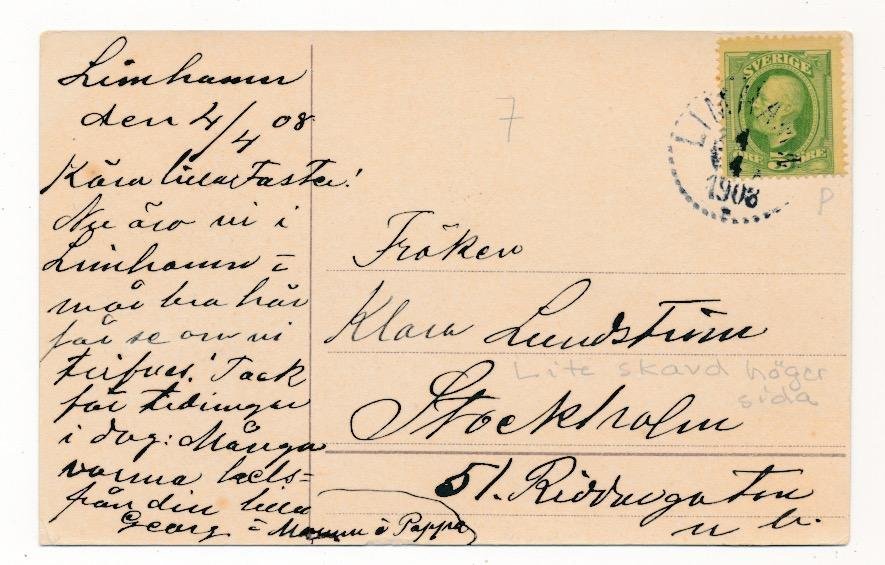 Limhamn
den 4/4 08
Kära lilla Faster!
Nu äro vi i
Limhamn o
mår bra här
får se om vi
trifves! Tack
för tidningar
i dag: Många
varma hels=
från din lilla
Georg o Mamma o Pappa
7
SVERIGE
5 ÖRE
LIMHAMN
4
4
1908
P
Fröken
Klara Lundström
Lite skavd höger
sida
Stockholm
51. Riddaregatan
n b.